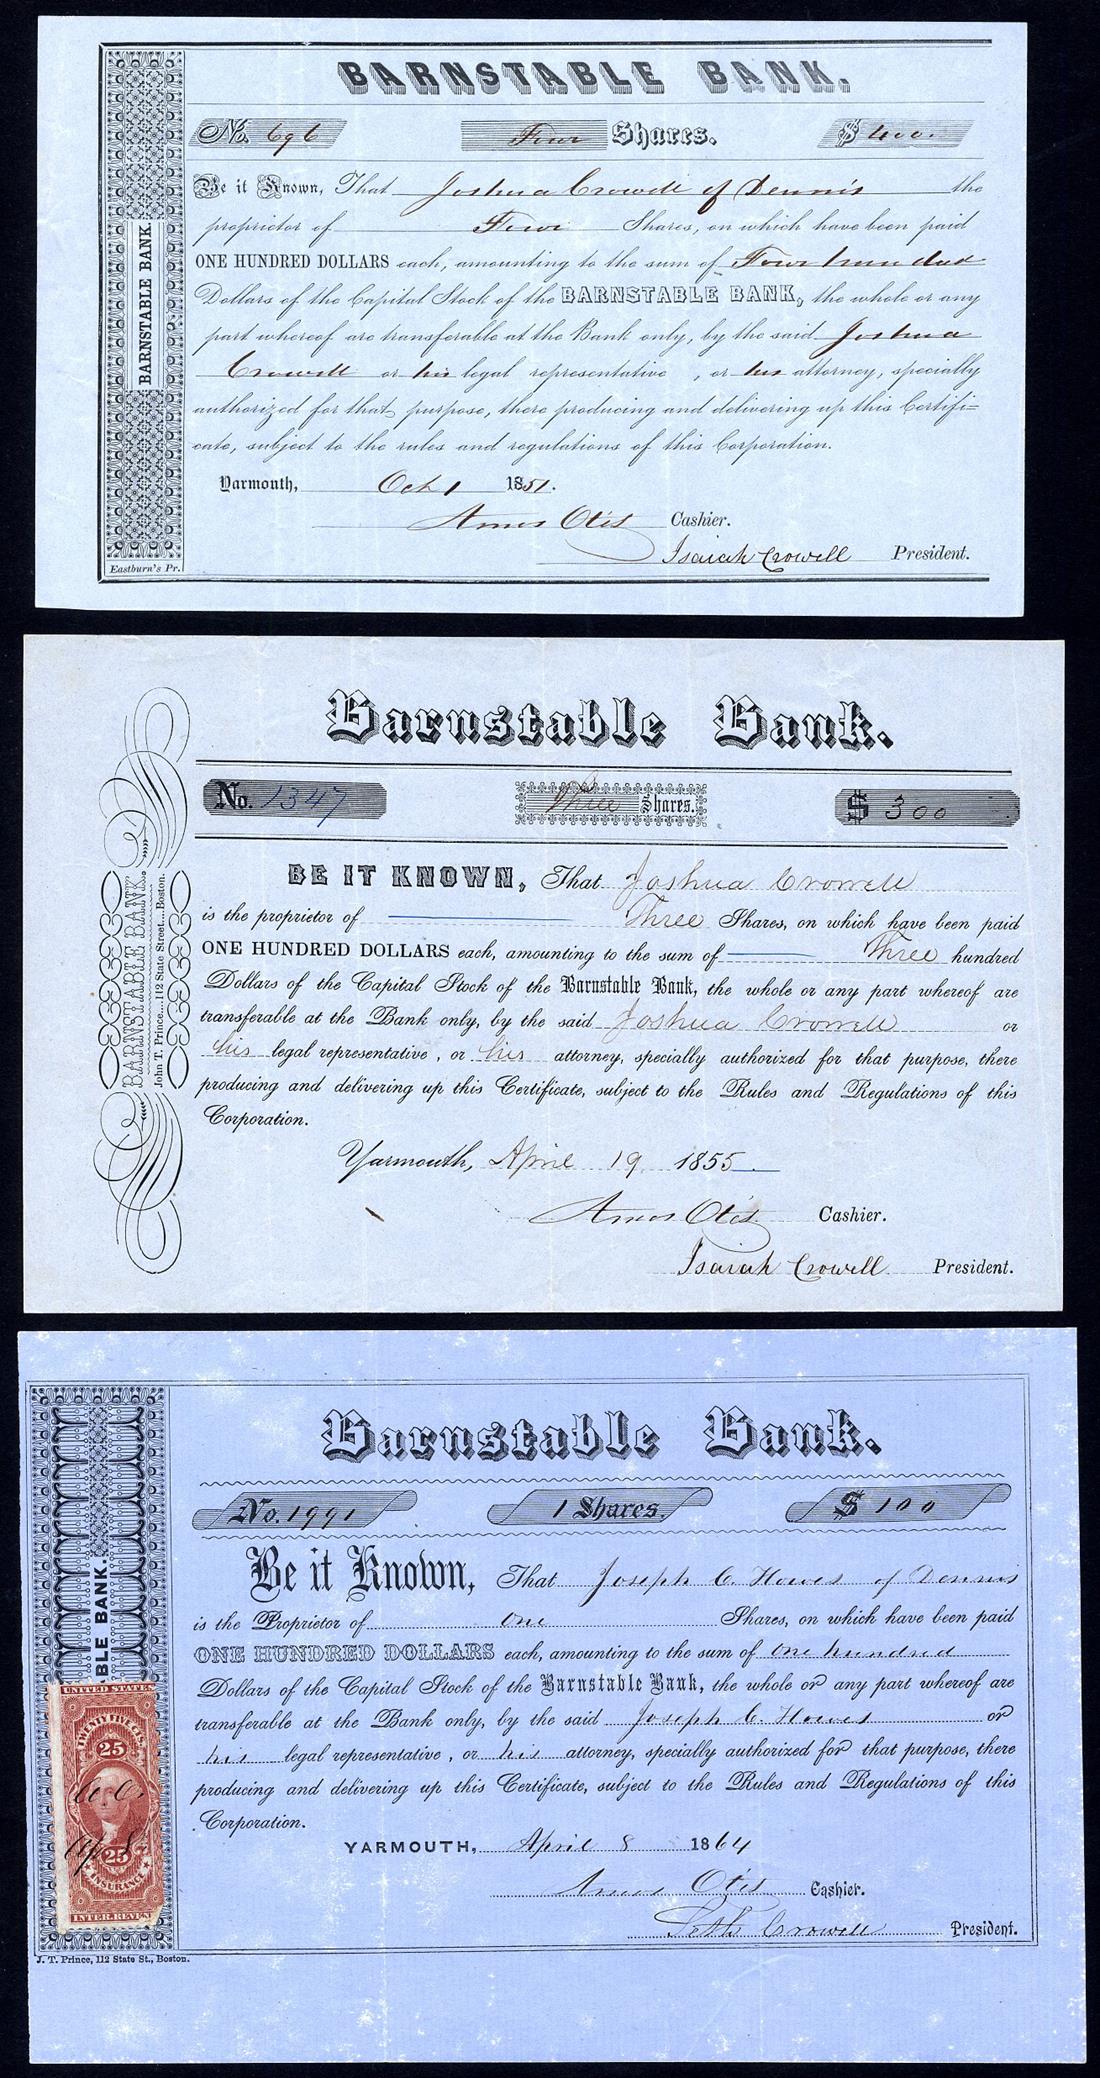 BARNSTABLE BANK.
No. 696 Four Shares. $ 400.
Be it Known, That Joshua Crowell of Dennis the
proprietor of Four Shares, on which have been paid
ONE HUNDRED DOLLARS each, amounting to the sum of Four hundred
Dollars of the Capital Stock of the BARNSTABLE BANK, the whole or any
part whereof are transferable at the Bank only, by the said Joshua
Crowell or his legal representative, or his attorney, specially
authorized for that purpose, there producing and delivering up this Certifi=
cate, subject to the rules and regulations of this Corporation.
Yarmouth, Oct 1 1851.
Amos Otis Cashier.
Isaiah Crowell President.
BARNSTABLE BANK.
Eastburn's Pr.
Barnstable Bank.
No. 1347 Three Shares. $ 300
BE IT KNOWN, That Joshua Crowell
is the proprietor of Three Shares, on which have been paid
ONE HUNDRED DOLLARS each, amounting to the sum of Three hundred
Dollars of the Capital Stock of the Barnstable Bank, the whole or any part whereof are
transferable at the Bank only, by the said Joshua Crowell or
his legal representative, or his attorney, specially authorized for that purpose, there
producing and delivering up this Certificate, subject to the Rules and Regulations of this
Corporation.
Yarmouth, April 19 1855.
Amos Otis Cashier.
Isaiah Crowell President.
BARNSTABLE BANK.
John T. Prince....112 State Street....Boston.
Barnstable Bank.
No. 1991 1 Shares. $ 100
Be it Known, That Joseph C. Howes of Dennis
is the Proprietor of one Shares, on which have been paid
ONE HUNDRED DOLLARS each, amounting to the sum of One hundred
Dollars of the Capital Stock of the Barnstable Bank, the whole or any part whereof are
transferable at the Bank only, by the said Joseph C. Howes or
his legal representative, or his attorney, specially authorized for that purpose, there
producing and delivering up this Certificate, subject to the Rules and Regulations of this
Corporation.
YARMOUTH, April 8 1864
Amos Otis Cashier.
Seth Crowell President.
BLE BANK.
UNITED STATES
TWENTY FIVE CTS.
25
25
INSURANCE
INTER. REVENUE
J. T. Prince, 112 State St., Boston.